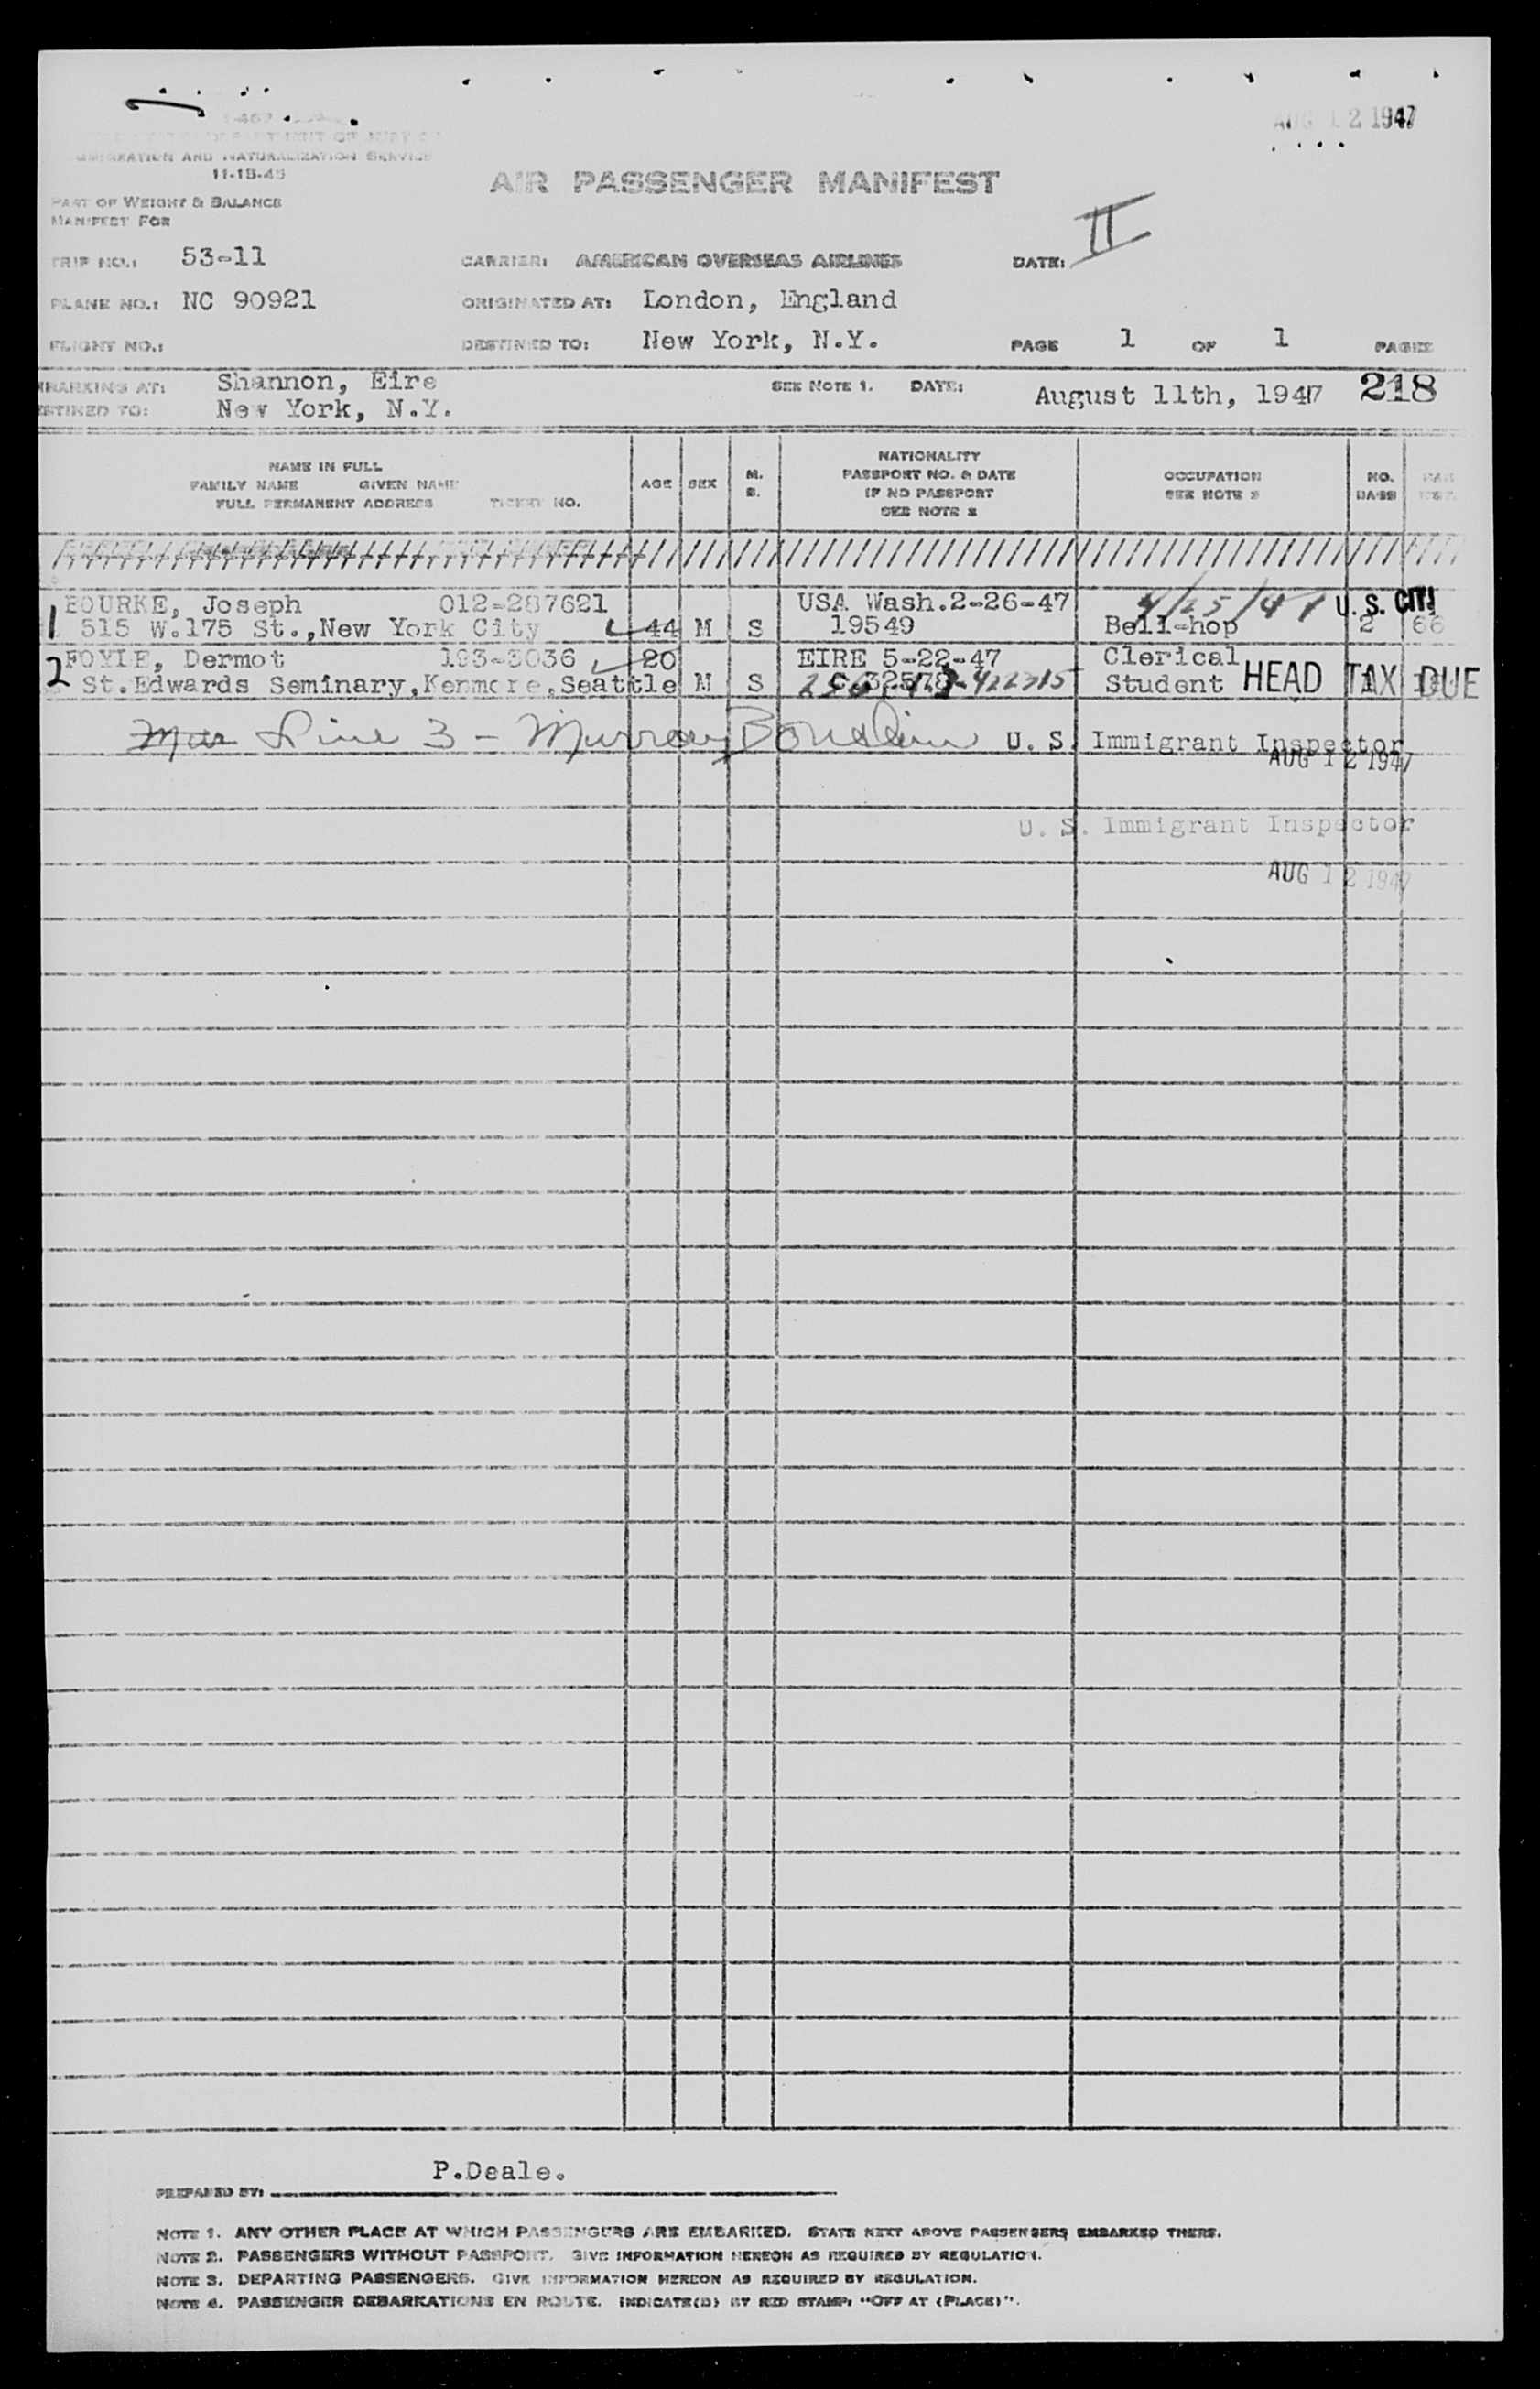 AUG 12 1947
IMMIGRATION AND NATURALIZATION SERVICE
11-18-45
AIR PASSENGER MANIFEST
PART OF WEIGHT & BALANCE
MANIFEST FOR
II
TRIP NO.: 53-11 CARRIER: AMERICAN OVERSEAS AIRLINES DATE:
PLANE NO.: NC 90921 ORIGINATED AT: London, England
FLIGHT NO.: DESTINED TO: New York, N.Y. PAGE 1 OF 1 PAGES
EMBARKING AT: Shannon, Eire SEE NOTE 1. DATE: August 11th, 1947 218
DESTINED TO: New York, N.Y.
NAME IN FULL
FAMILY NAME GIVEN NAME
FULL PERMANENT ADDRESS TICKET NO.
AGE
SEX
M.
S.
NATIONALITY
PASSPORT NO. & DATE
IF NO PASSPORT
SEE NOTE 2
OCCUPATION
SEE NOTE 3
NO.
BAGS
1 BOURKE, Joseph 012-287621 USA Wash.2-26-47 U.S. CIT!
515 W.175 St.,New York City 44 M S 19549 Bell-hop 2 66
2 FOYLE, Dermot 193-3036 20 EIRE 5-22-47 Clerical
St.Edwards Seminary,Kenmore,Seattle M S C.32578 Student HEAD TAX DUE
Line 3 - Murray U. S. Immigrant Inspector
AUG 12 1947
U. S. Immigrant Inspector
AUG 12 1947
P.Deale.
PREPARED BY:
NOTE 1. ANY OTHER PLACE AT WHICH PASSENGERS ARE EMBARKED. STATE NEXT ABOVE PASSENGERS EMBARKED THERE.
NOTE 2. PASSENGERS WITHOUT PASSPORT. GIVE INFORMATION HEREON AS REQUIRED BY REGULATION.
NOTE 3. DEPARTING PASSENGERS. GIVE INFORMATION HEREON AS REQUIRED BY REGULATION.
NOTE 4. PASSENGER DEBARKATIONS EN ROUTE. INDICATE(D) BY RED STAMP: "OFF AT (PLACE)".